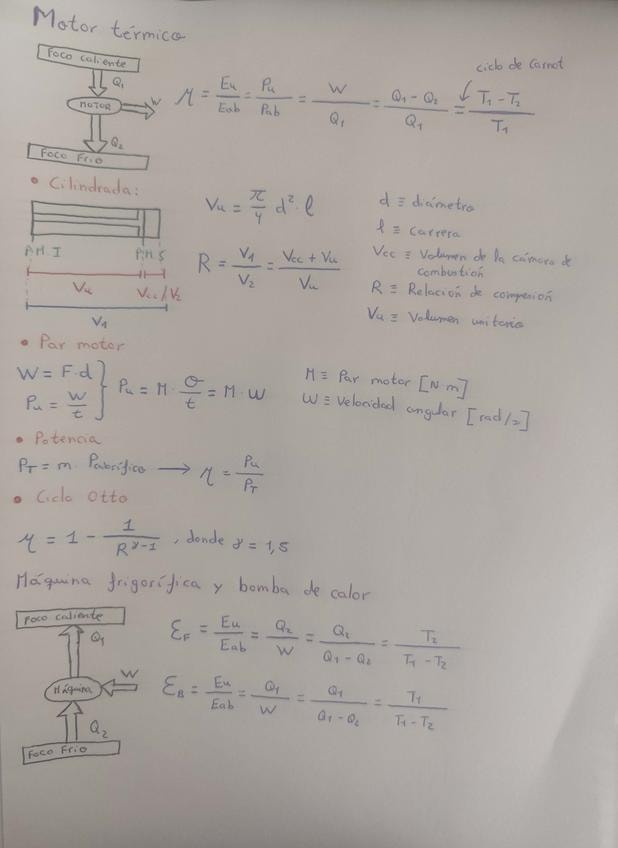 Motor térmico
Foco caliente
Q₁
MOTOR
W
Q₂
Foco Frio
η = Eu/Eab = Pu/Pab = W/Q₁ = Q₁ - Q₂/Q₁ = T₁ - T₂/T₁
ciclo de Carnot
• Cilindrada:
P.M.I
P.M.S
Vu
Vcc/V₂
V₁
Vu = π/4 d² · l
R = V₁/V₂ = Vcc + Vu/Vu
d ≡ diámetro
l ≡ carrera
Vcc ≡ Volumen de la cámara de
combustión
R ≡ Relación de compresión
Vu ≡ Volumen unitario
• Par motor
W = F·d
Pu = W/t
} Pu = M · θ/t = M · W
M ≡ Par motor [N·m]
W ≡ Velocidad angular [rad/s]
• Potencia
P_T = m · Pcabrífico → η = Pu/P_T
• Ciclo Otto
η = 1 - 1/R^γ-1, donde γ = 1,5
Máquina frigorífica y bomba de calor
Foco caliente
Q₁
Máquina
W
Q₂
Foco Frio
ε_F = Eu/Eab = Q₂/W = Q₂/Q₁ - Q₂ = T₂/T₁ - T₂
ε_B = Eu/Eab = Q₁/W = Q₁/Q₁ - Q₂ = T₁/T₁ - T₂